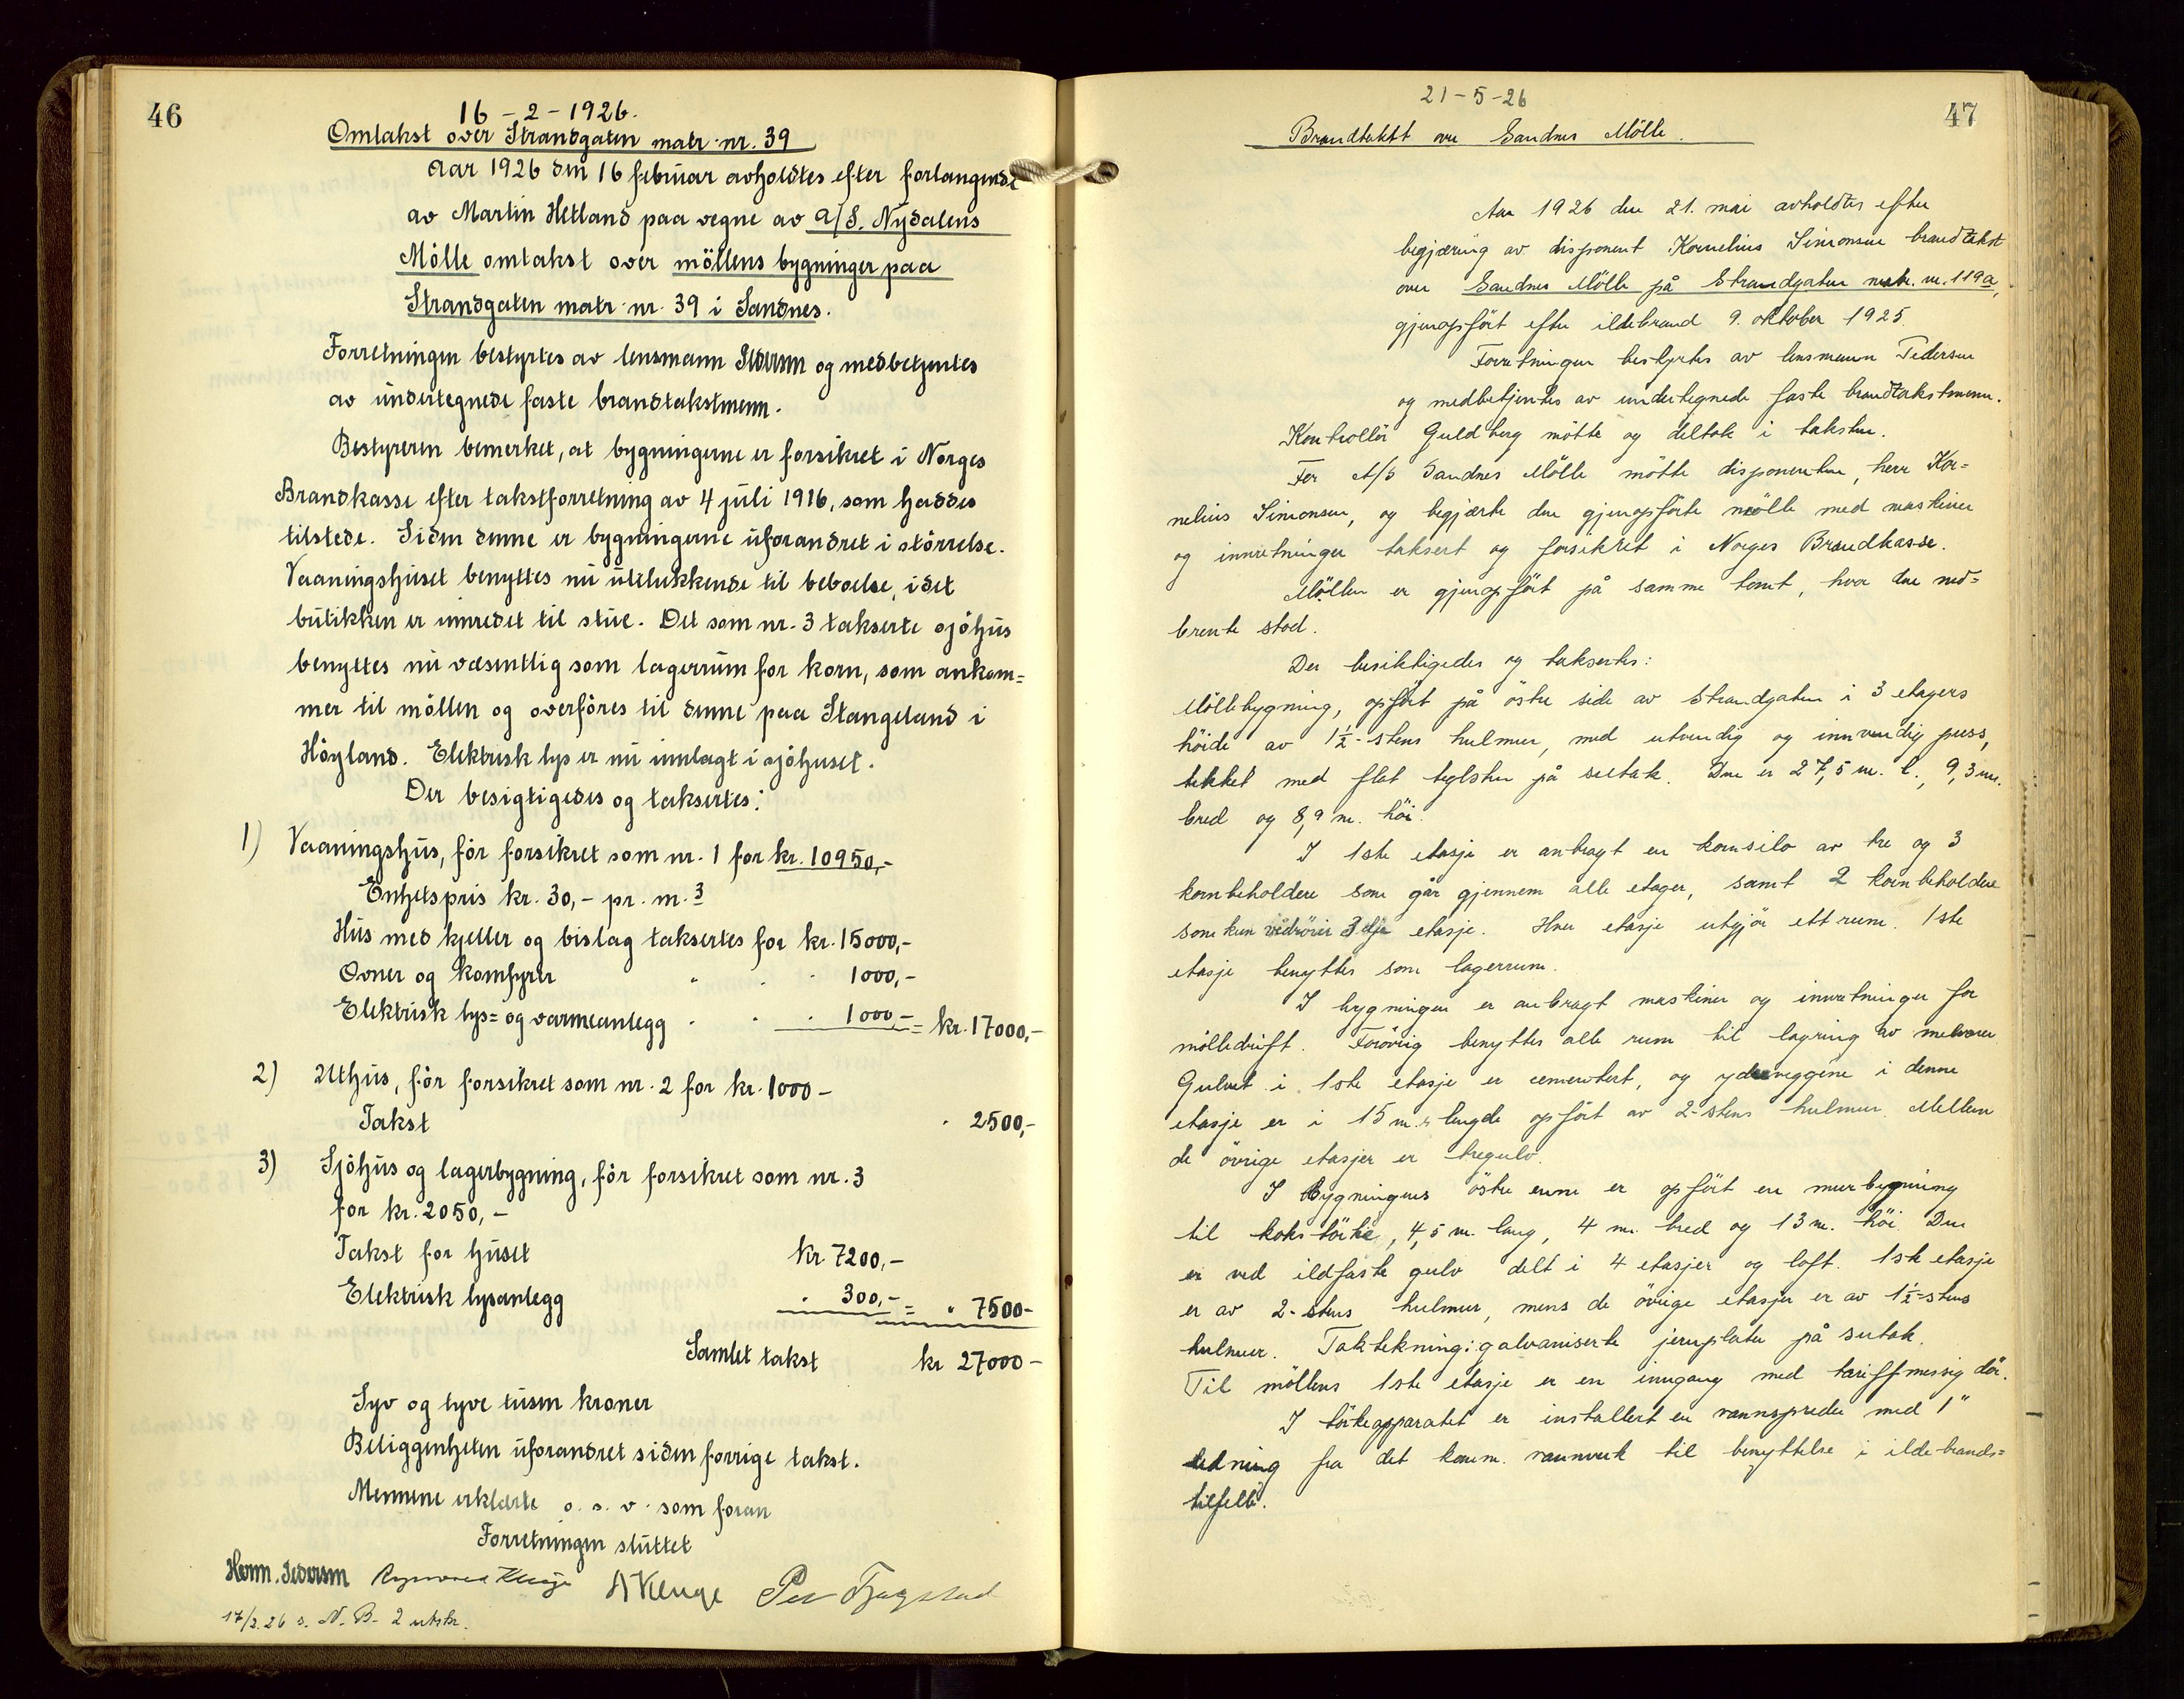 46
16-2-1926.
Omtakst over Strandgaten matr. nr. 39
Aar 1926 den 16 februar avholdtes efter forlangende
av Martin Hetland paa vegne av A/S. Nydalens
Mölle omtakst over möllens bygninger paa
Strandgaten matr. nr. 39 i Sandnes.
Forretningen bestyrtes av lensmann Pedersen og medbetjentes
av undertegnede faste brandtakstmenn.
Bestyreren bemerket, at bygningerne er forsikret i Norges
Brandkasse efter takstforretning av 4 juli 1916, som haddes
tilstede. Siden denne er bygningerne uforandret i störrelse.
Vaaningshuset benyttes nu utelukkende til beboelse, idet
butikken er innredet til stue. Det som nr. 3 takserte sjöhus
benyttes nu væsentlig som lagerrum for korn, som ankom=
mer til möllen og overföres til denne paa Stangeland i
Höyland. Elektrisk lys er nu innlagt i sjöhuset.
Der besigtigedes og taksertes:
1) Vaaningshus, för forsikret som nr. 1 for kr. 10950,-
Enhetspris kr. 30,- pr. m.3
Hus med kjeller og bislag taksertes for kr. 15000,-
Ovner og komfyrer " . . 1000,-
Elektrisk lys= og varmeanlegg . . . 1000,- = kr. 17000,-
2) Uthus, för forsikret som nr. 2 for kr. 1000-
Takst " 2500,-
3) Sjöhus og lagerbygning, för forsikret som nr. 3
for kr. 2050,-
Takst for huset kr 7200,-
Elektrisk lysanlegg " 300,- = " 7500-
Samlet takst kr 27000-
Syv og tyve tusen kroner
Beliggenheten uforandret siden forrige takst.
Mennene erklærte o. s. v. som foran
Forretningen sluttet
Herm. Pedersen A Kluge Per Tjugstad
17/2.26 s. N. B. 2 utskr.
47
21-5-26
Brandtakst over Sandnes Mölle.
Aar 1926 den 21. mai avholdtes efter
begjæring av disponent Kornelius Simonsen brandtakst
over Sandnes Mölle på Strandgaten matr. nr. 119a,
gjenopfört efter ildebrand 9. oktober 1925.
Forretningen bestyrtes av lensmann Pedersen
og medbetjentes av undertegnede faste brandtakstmenn.
Kontrollör Guldberg mötte og deltok i taksten.
For A/S Sandnes Mölle mötte disponenten, herr Kor=
nelius Simonsen, og begjærte den gjenopförte mölle med maskiner
og innretninger taksert og forsikret i Norges Brandkasse.
Möllen er gjenopfört på samme tomt, hvor den ned=
brente stod.
Der besiktigedes og taksertes:
Möllebygning, opfört på östre side av Strandgaten i 3 etagers
höide av 1½-stens hulmur, med utvendig og innvendig puss,
tekket med flat teglsten på sutak. Den er 27,5 m. l., 9,3 m.
bred og 8,9 m. höi.
I 1ste etasje er anbragt en kornsilo av tre og 3
kornbeholdere som går gjennem alle etager, samt 2 kornbeholdere
som kun vedrörer 3dje etasje. Hver etasje utgjör ett rum. 1ste
etasje benyttes som lagerrum.
I bygningen er anbragt maskiner og innretninger for
mölledrift. Forövrig benyttes alle rum til lagring av melvarer.
Gulvet i 1ste etasje er cementert, og yderveggene i denne
etasje er i 15 m.s lengde opfört av 2-stens hulmur. Mellem
de övrige etasjer er tregulv.
I bygningens östre ende er opfört en murbygning
til kokstörke, 4,5 m. lang, 4 m. bred og 13 m. höi. Den
er ved ildfaste gulv delt i 4 etasjer og loft. 1ste etasje
er av 2-stens hulmur, mens de övrige etasjer er av 1½-stens
hulmur. Taktekning: galvaniserte jernplater på sutak.
Til möllens 1ste etasje er en inngang med tariffmessig dör.
I törkeapparatet er installert en vannspreder med 1"
ledning fra det komm. vannverk til benyttelse i ildebrands=
tilfelle.